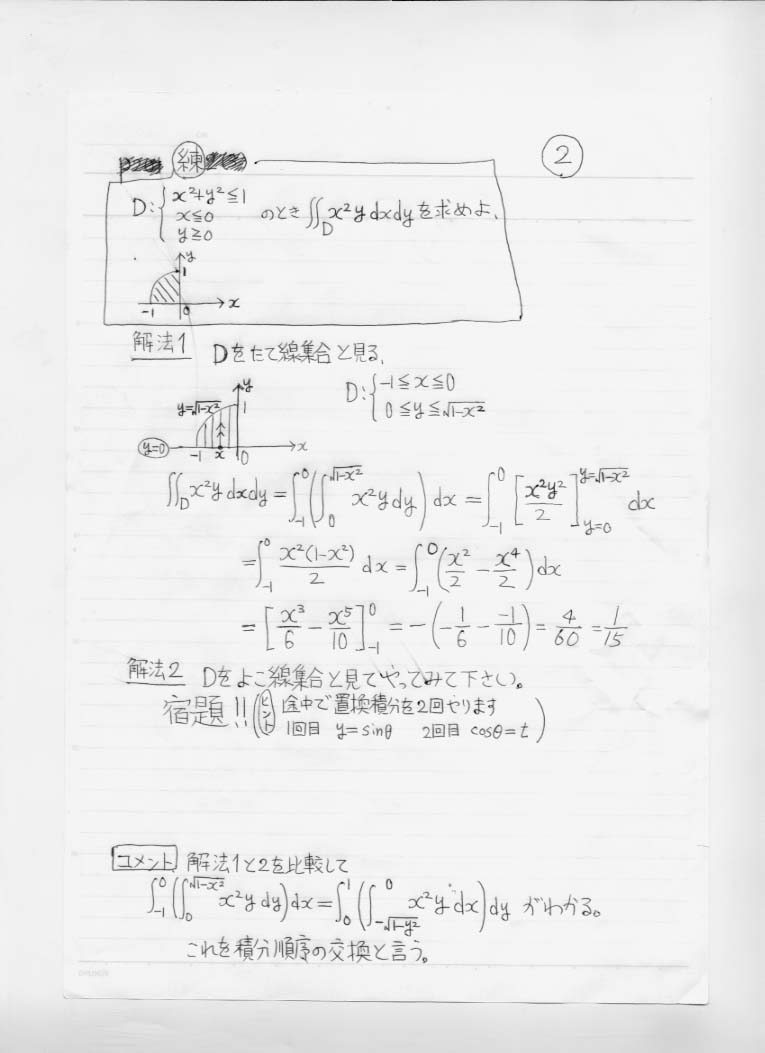 練
②
D: { x²+y²≦1
x≦0
y≧0
のとき ∬_D x²y dxdy を求めよ、
y
1
-1 0 x
解法1 Dをたて線集合と見る、
D: { -1≦x≦0
0≦y≦√(1-x²)
y
y=√(1-x²) 1
y=0 -1 x 0 x
∬_D x²y dxdy = ∫_{-1}^{0} (∫_{0}^{√(1-x²)} x²y dy) dx = ∫_{-1}^{0} [x²y²/2]_{y=0}^{y=√(1-x²)} dx
= ∫_{-1}^{0} x²(1-x²)/2 dx = ∫_{-1}^{0} (x²/2 - x⁴/2) dx
= [x³/6 - x⁵/10]_{-1}^{0} = -(-1/6 - -1/10) = 4/60 = 1/15
解法2 Dをよこ線集合と見てやってみて下さい。
宿題!! (ヒント 途中で置換積分を2回やります
1回目 y=sinθ 2回目 cosθ=t)
コメント 解法1と2を比較して
∫_{-1}^{0} (∫_{0}^{√(1-x²)} x²y dy) dx = ∫_{0}^{1} (∫_{-√(1-y²)}^{0} x²y dx) dy がわかる。
これを積分順序の交換と言う。